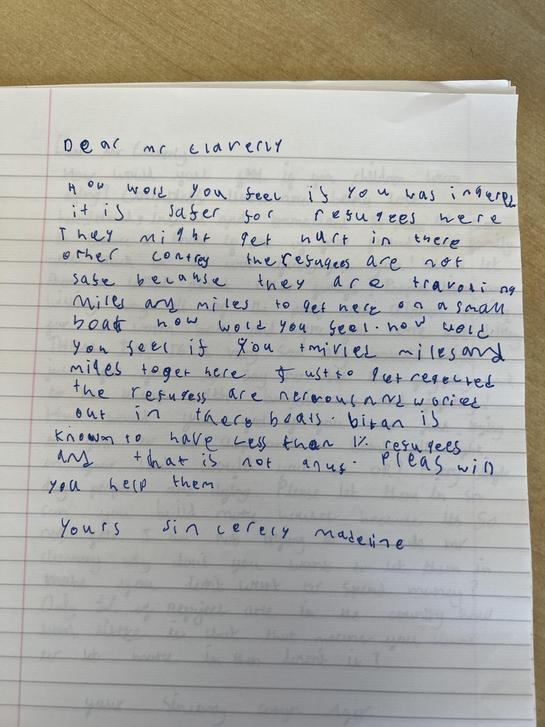 Dear mr claverly
How wold you feel if you was ingered
it is safer for refugees here
They might get hurt in there
other contrey the refugees are not
safe because they are traveling
miles and miles to get here on a small
boat how wold you feel. how wold
you feel if you miles and
miles to get here just to get rejected
the refugess are nervous and woried
out in there boats. bitan is
known to have less than 1% refugees
and that is not anuf. Pleas will
you help them
Yours sincerely madeline